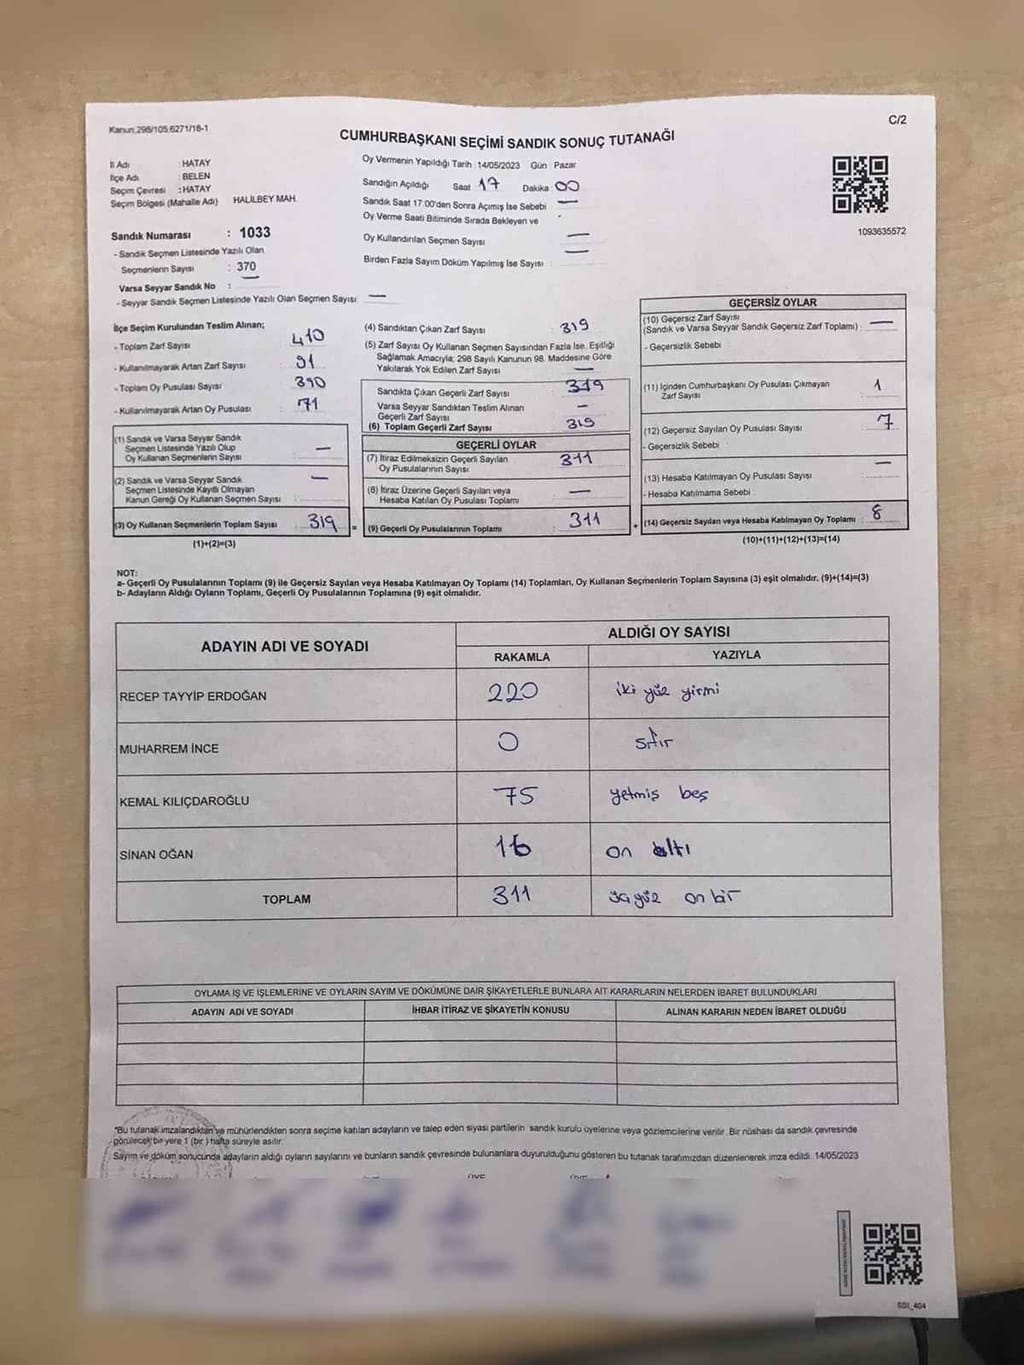 Kanun.298/105.6271/16-1
C/2
CUMHURBAŞKANI SEÇİMİ SANDIK SONUÇ TUTANAĞI
İl Adı : HATAY
İlçe Adı : BELEN
Seçim Çevresi : HATAY
Seçim Bölgesi (Mahalle Adı) HALİLBEY MAH.
Sandık Numarası : 1033
- Sandık Seçmen Listesinde Yazılı Olan
Seçmenlerin Sayısı : 370
Varsa Seyyar Sandık No : —
- Seyyar Sandık Seçmen Listesinde Yazılı Olan Seçmen Sayısı: —
Oy Vermenin Yapıldığı Tarih :14/05/2023 Gün Pazar
Sandığın Açıldığı Saat 17 Dakika 00
Sandık Saat 17.00'den Sonra Açımış İse Sebebi —
Oy Verme Saati Bitiminde Sırada Bekleyen ve
Oy Kullandırılan Seçmen Sayısı —
Birden Fazla Sayım Döküm Yapılmış İse Sayısı —
1093635572
İlçe Seçim Kurulundan Teslim Alınan;
- Toplam Zarf Sayısı 410
- Kullanılmayarak Artan Zarf Sayısı 91
- Toplam Oy Pusulası Sayısı 390
- Kullanılmayarak Artan Oy Pusulası 71
(1) Sandık ve Varsa Seyyar Sandık
Seçmen Listesinde Yazılı Olup
Oy Kullanan Seçmenlerin Sayısı —
(2) Sandık ve Varsa Seyyar Sandık
Seçmen Listesinde Kayıtlı Olmayan
Kanun Gereği Oy Kullanan Seçmen Sayısı —
(3) Oy Kullanan Seçmenlerin Toplam Sayısı 319 =
(1)+(2)=(3)
(4) Sandıktan Çıkan Zarf Sayısı 319
(5) Zarf Sayısı Oy Kullanan Seçmen Sayısından Fazla İse, Eşitliği
Sağlamak Amacıyla; 298 Sayılı Kanunun 98. Maddesine Göre
Yakılarak Yok Edilen Zarf Sayısı —
Sandıkta Çıkan Geçerli Zarf Sayısı 319
Varsa Seyyar Sandıktan Teslim Alınan
Geçerli Zarf Sayısı —
(6) Toplam Geçerli Zarf Sayısı 319
GEÇERLİ OYLAR
(7) İtiraz Edilmeksizin Geçerli Sayılan
Oy Pusulalarının Sayısı 311
(8) İtiraz Üzerine Geçerli Sayılan veya
Hesaba Katılan Oy Pusulası Toplamı —
(9) Geçerli Oy Pusulalarının Toplamı 311 +
GEÇERSİZ OYLAR
(10) Geçersiz Zarf Sayısı
(Sandık ve Varsa Seyyar Sandık Geçersiz Zarf Toplamı) : —
- Geçersizlik Sebebi :
(11) İçinden Cumhurbaşkanı Oy Pusulası Çıkmayan
Zarf Sayısı 1
(12) Geçersiz Sayılan Oy Pusulası Sayısı 7
- Geçersizlik Sebebi :
(13) Hesaba Katılmayan Oy Pusulası Sayısı —
- Hesaba Katılmama Sebebi :
(14) Geçersiz Sayılan veya Hesaba Katılmayan Oy Toplamı 8
(10)+(11)+(12)+(13)=(14)
NOT:
a- Geçerli Oy Pusulalarının Toplamı (9) ile Geçersiz Sayılan veya Hesaba Katılmayan Oy Toplamı (14) Toplamları, Oy Kullanan Seçmenlerin Toplam Sayısına (3) eşit olmalıdır. (9)+(14)=(3)
b- Adayların Aldığı Oyların Toplamı, Geçerli Oy Pusulalarının Toplamına (9) eşit olmalıdır.
ADAYIN ADI VE SOYADI ALDIĞI OY SAYISI
RAKAMLA YAZIYLA
RECEP TAYYİP ERDOĞAN 220 iki yüz yirmi
MUHARREM İNCE 0 sıfır
KEMAL KILIÇDAROĞLU 75 yetmiş beş
SİNAN OĞAN 16 on altı
TOPLAM 311 üç yüz on bir
OYLAMA İŞ VE İŞLEMLERİNE VE OYLARIN SAYIM VE DÖKÜMÜNE DAİR ŞİKAYETLERLE BUNLARA AİT KARARLARIN NELERDEN İBARET BULUNDUKLARI
ADAYIN ADI VE SOYADI İHBAR İTİRAZ VE ŞİKAYETİN KONUSU ALINAN KARARIN NEDEN İBARET OLDUĞU
"Bu tutanak imzalandıktan ve mühürlendikten sonra seçime katılan adayların ve talep eden siyasi partilerin sandık kurulu üyelerine veya gözlemcilerine verilir. Bir nüshası da sandık çevresinde
görülecek bir yere 1 (bir) hafta süreyle asılır.
Sayım ve döküm sonucunda adayların aldığı oyların sayılarını ve bunların sandık çevresinde bulunanlara duyurulduğunu gösteren bu tutanak tarafımızdan düzenlenerek imza edildi. 14/05/2023
SSI_404